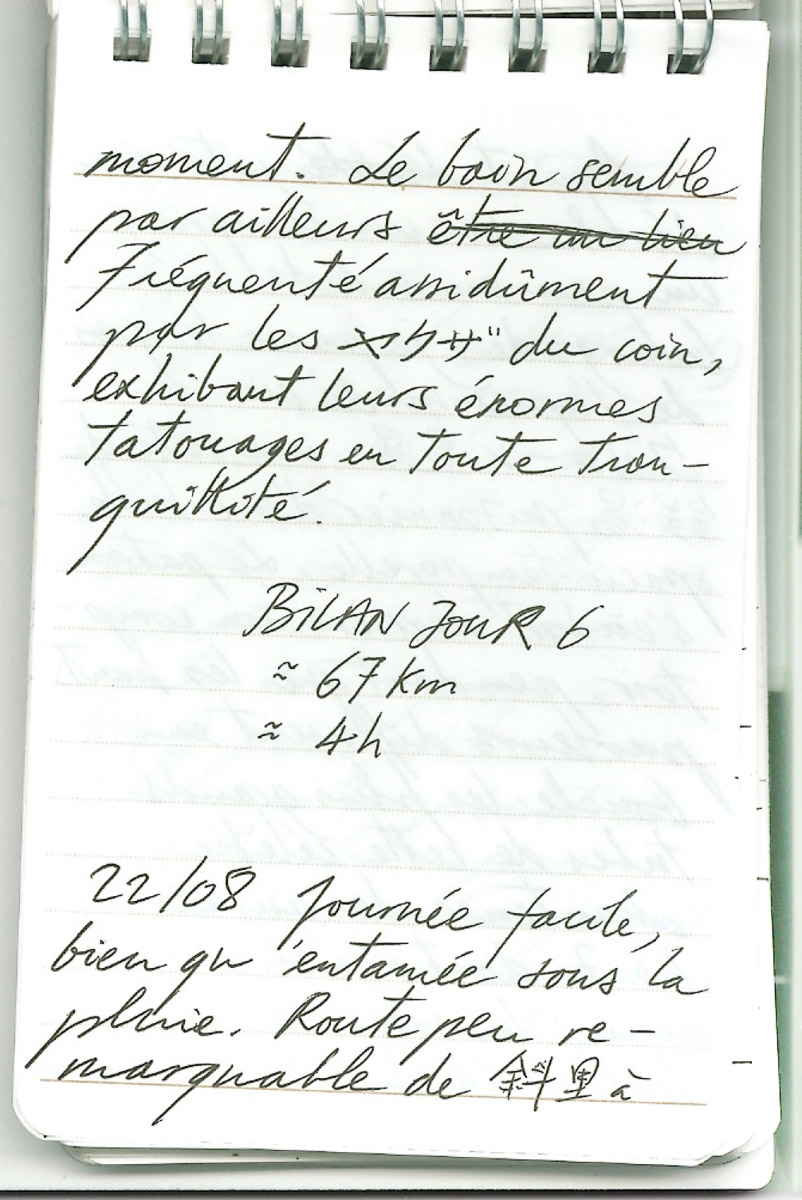 moment. Le bain semble
par ailleurs ~~être un lieu~~
fréquenté assidûment
par les ヤクザ du coin,
exhibant leurs énormes
tatouages en toute tran-
quillité.
BILAN JOUR 6
≈ 67 km
≈ 4h
22/08 Journée facile,
bien qu'entamée sous la
pluie. Route peu re-
marquable de 斜里 à